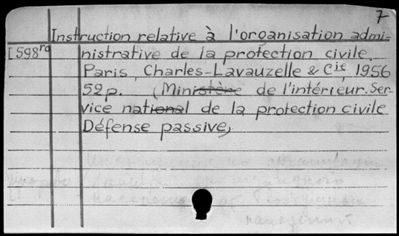 7
Instruction relative à l'organisation admi-
I598rg nistrative de la protection civile.
Paris, Charles-Lavauzelle & Cie, 1956
52p. (Ministère de l'intérieur. Ser-
vice national de la protection civile
Défense passive)